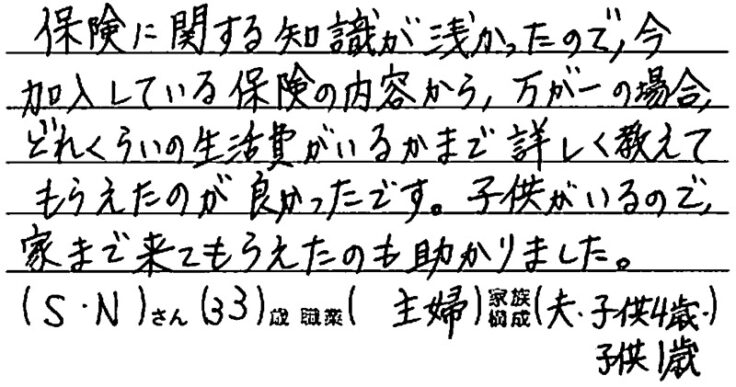 保険に関する知識が浅かったので、今
加入している保険の内容から、万が一の場合、
どれくらいの生活費がいるかまで詳しく教えて
もらえたのが良かったです。子供がいるので、
家まで来てもらえたのも助かりました。
(S・N)さん(33)歳 職業( 主婦)家族構成(夫・子供4歳・)
子供1歳